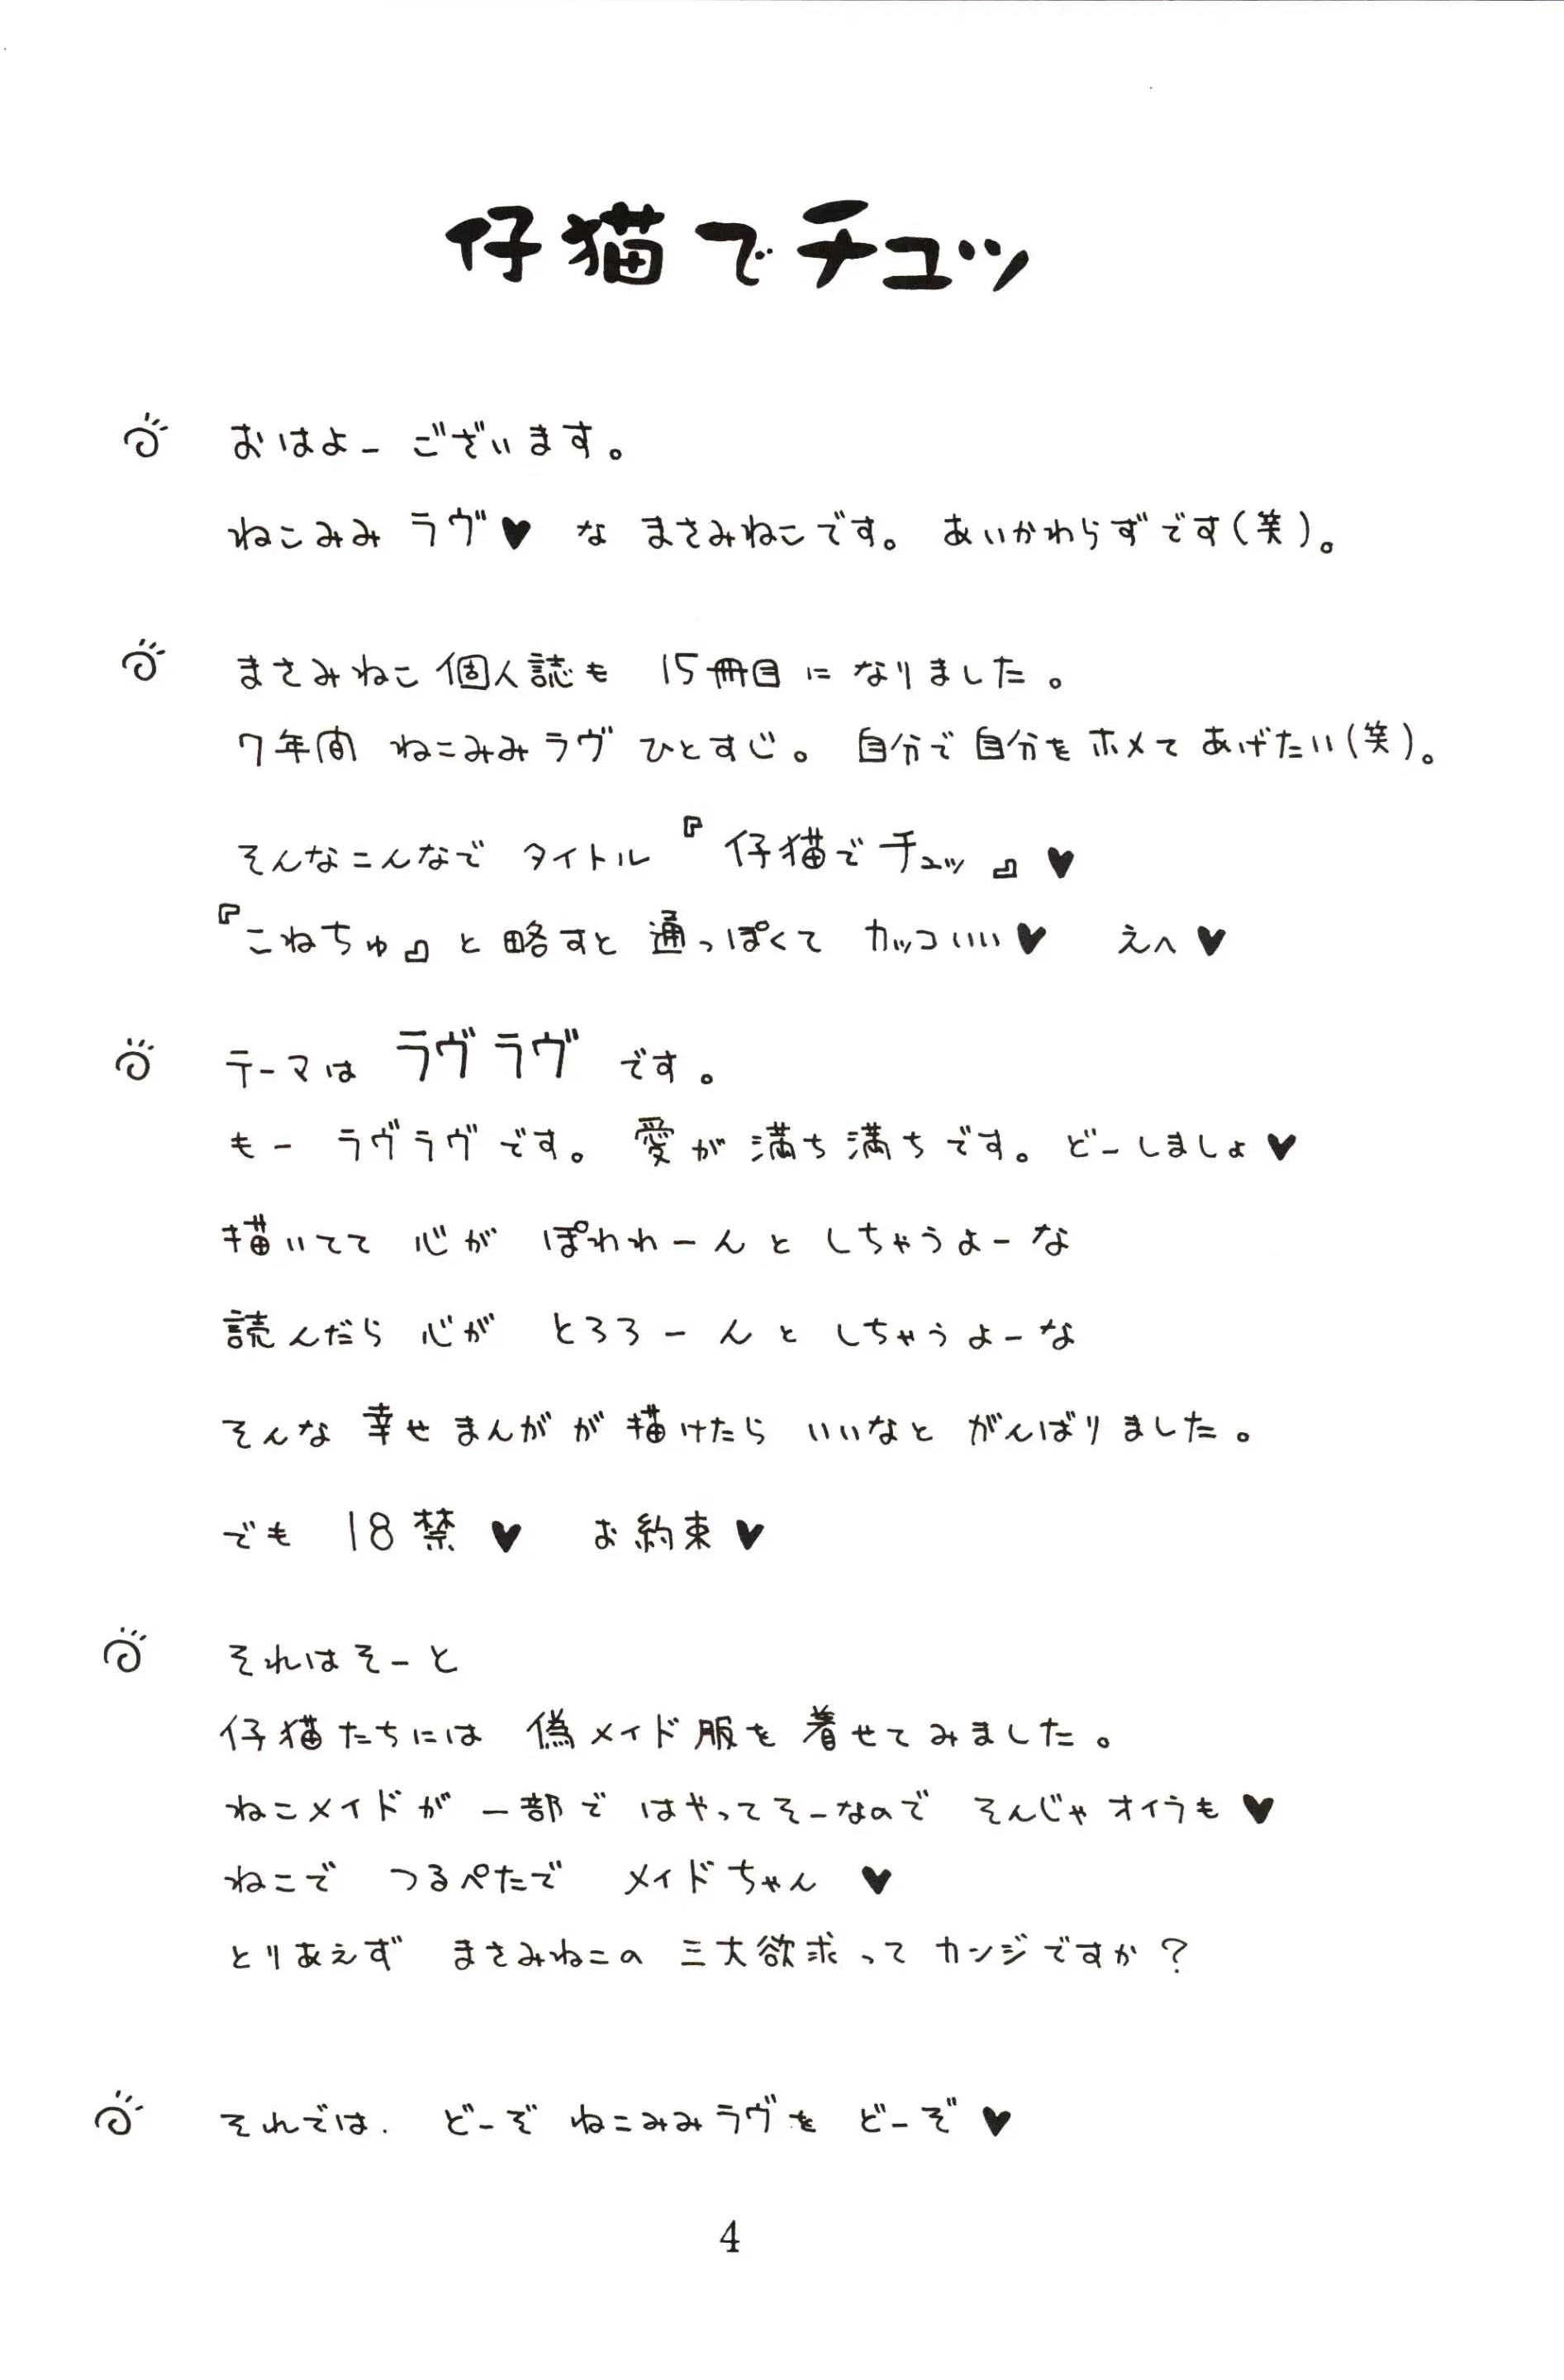 仔猫でチュッ
おはよーございます。
ねこみみラヴ♥な まさみねこです。 あいかわらずです(笑)。
まさみねこ個人誌も 15冊目になりました。
7年間 ねこみみラヴひとすじ。 自分で自分をホメてあげたい(笑)。
そんなこんなで タイトル『仔猫でチュッ』♥
『こねちゅ』と略すと通っぽくて カッコいい♥ えへ♥
テーマは ラヴラヴ です。
もー ラヴラヴです。 愛が満ち満ちです。どーしましょ♥
描いてて 心が ぽわわーんと しちゃうよーな
読んだら 心が とろろーんと しちゃうよーな
そんな 幸せまんがが描けたら いいなと がんばりました。
でも 18禁♥ お約束♥
それはそーと
仔猫たちには 偽メイド服を着せてみました。
ねこメイドが 一部で はやってそーなので そんじゃオイラも♥
ねこで つるぺたで メイドちゃん♥
とりあえず まさみねこの 三大欲求ってカンジですか?
それでは. どーぞ ねこみみラヴを どーぞ♥
4